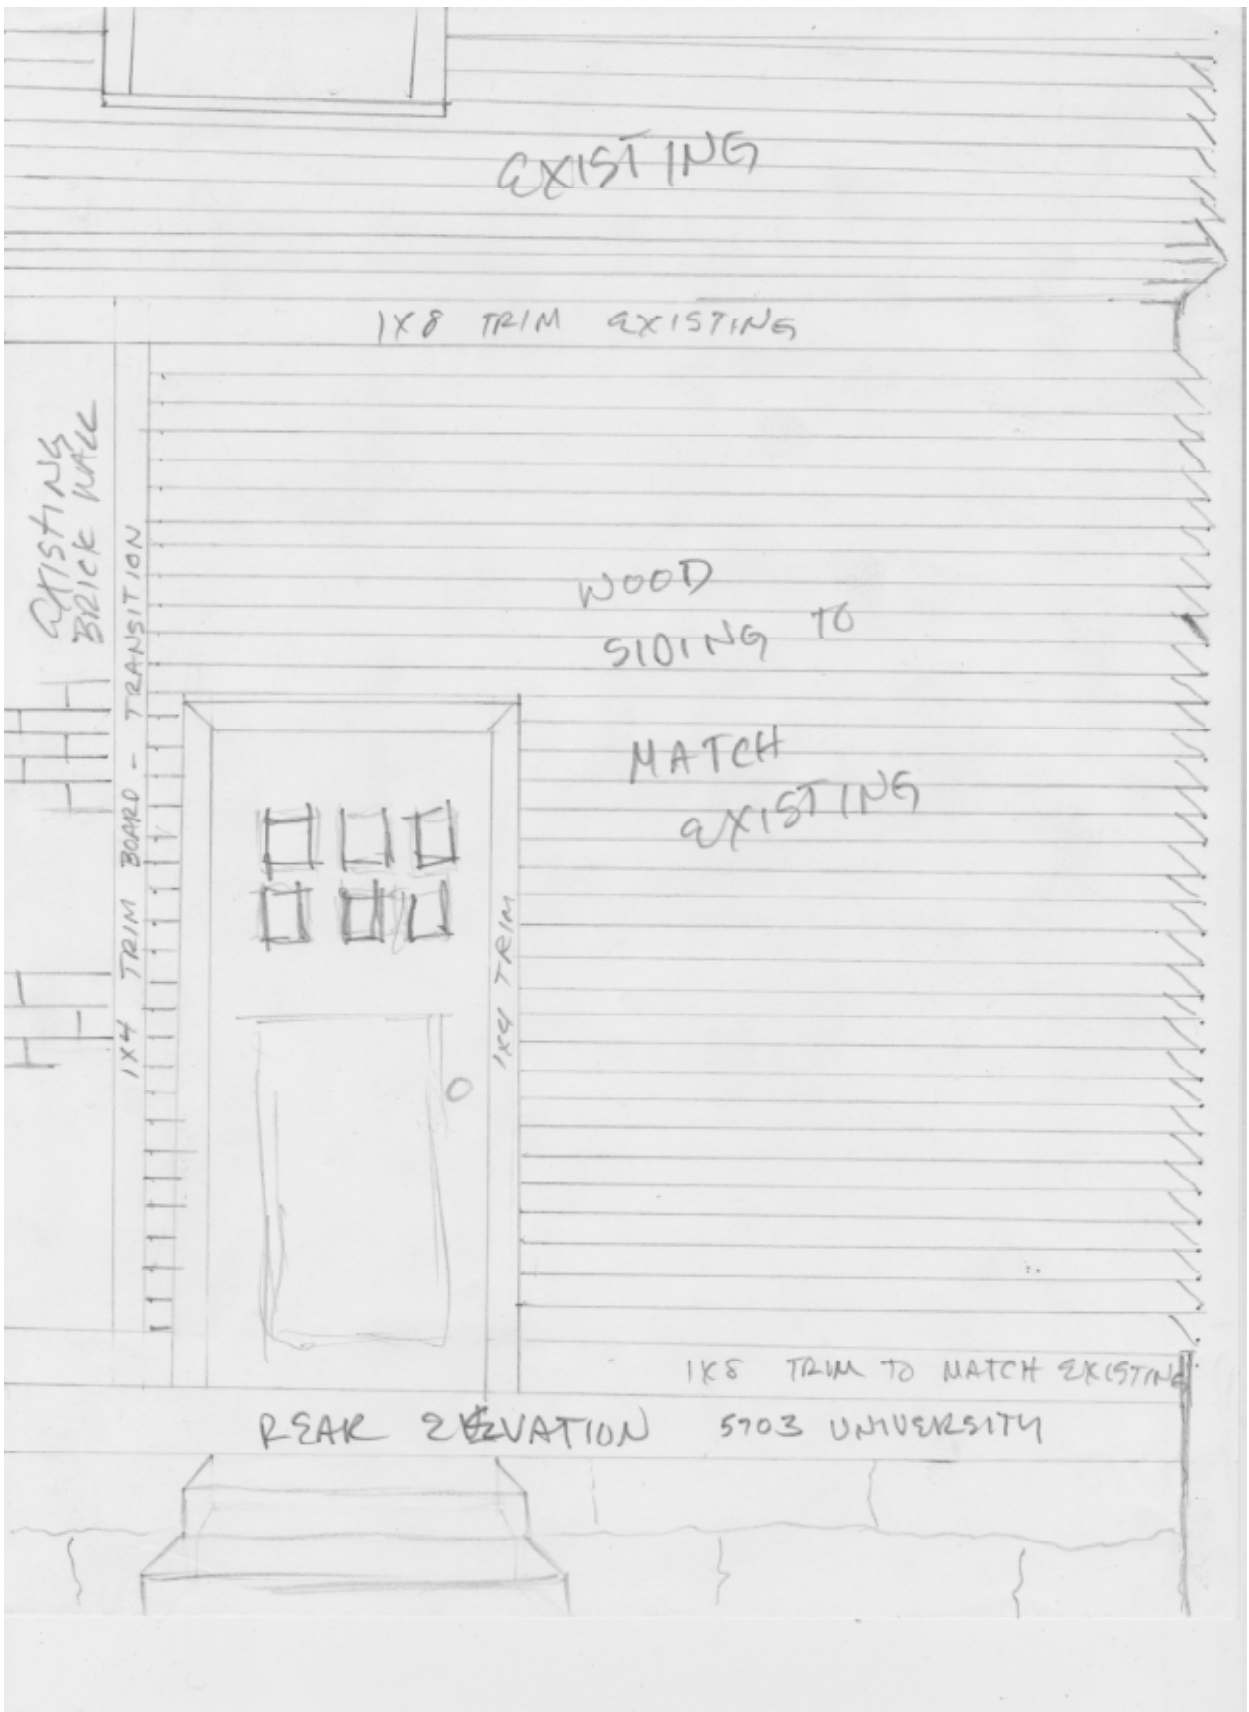 EXISTING
1X8 TRIM EXISTING
EXISTING
BRICK WALL
1X4 TRIM BOARD - TRANSITION
WOOD
SIDING TO
MATCH
EXISTING
1X4 TRIM
1X8 TRIM TO MATCH EXISTING
REAR ELEVATION 5703 UNIVERSITY